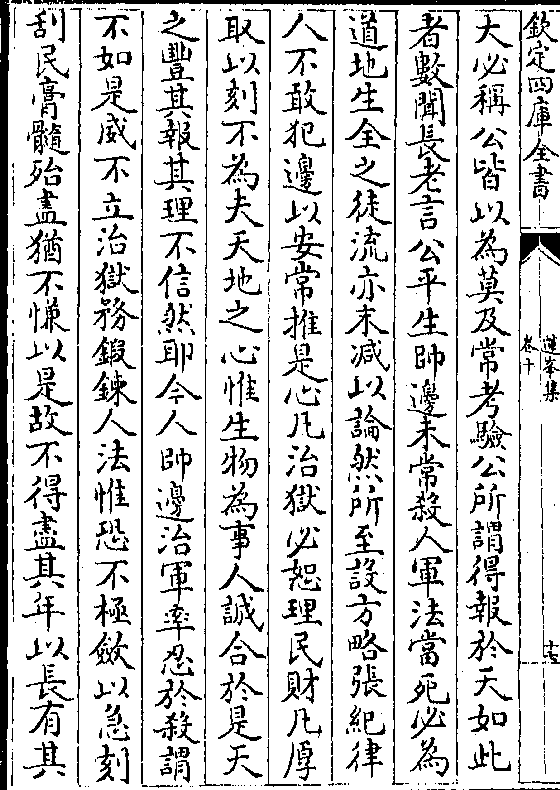 欽定四庫全書
蓮峯集
卷十
十七
大必稱公皆以為莫及常考驗公所謂得報於天如此
者數聞長老言公平生帥邊未常殺人軍法當死必為
道地生全之徒流亦末減以論然所至設方略張紀律
人不敢犯邊以安常推是心凡治獄必恕理民財凡厚
取以刻不為夫天地之心惟生物為事人誠合於是天
之豐其報其理不信然耶今人帥邊治軍率忍於殺謂
不如是威不立治獄務鍛鍊人法惟恐不極斂以急刻
刮民膏髓殆盡猶不慊以是故不得盡其年以長有其